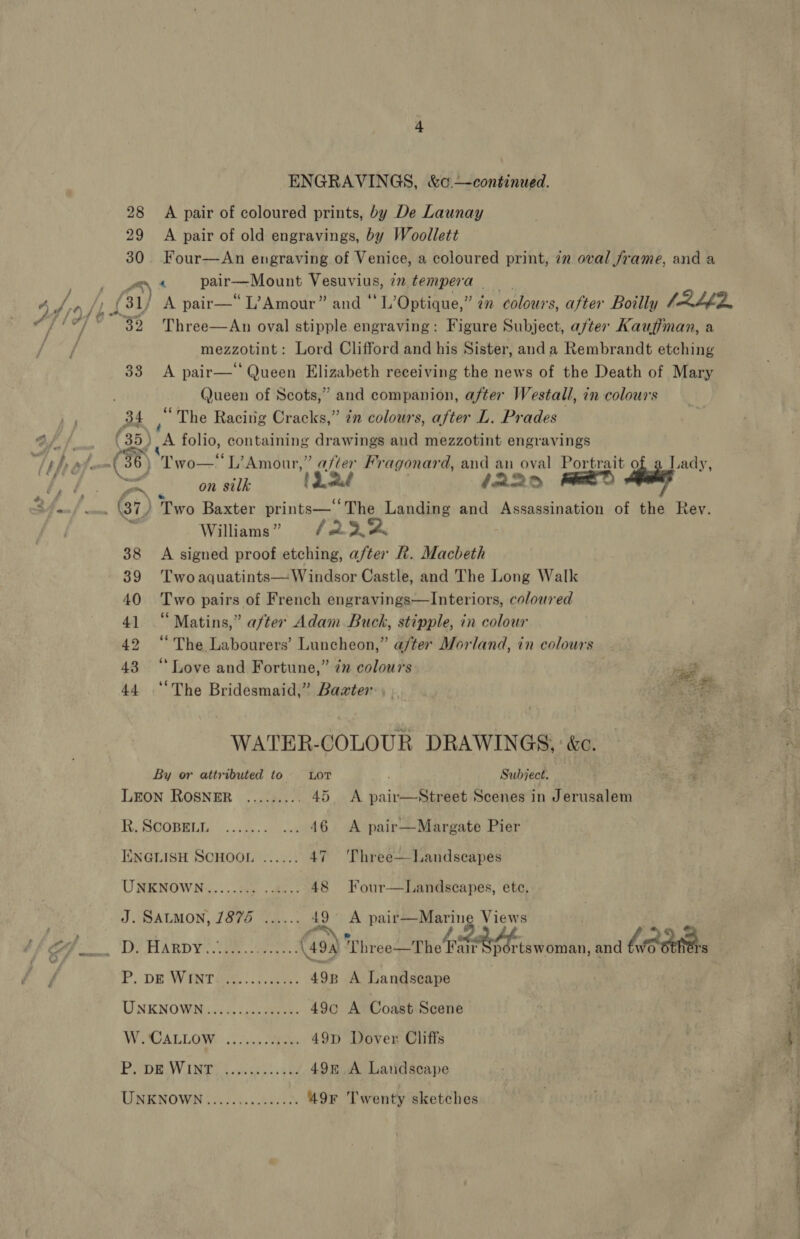 4
ENGRAVINGS, &c.—continued.
28 A pair of coloured prints, by De Launay
29 A pair of old engravings, by Woollett
30 Four—An engraving of Venice, a coloured print, in oval frame, and a
pair—Mount Vesuvius, in tempera
31 A pair—“L’Amour” and “L’Optique,” in colours, after Boilly
32 Three—An oval stipple engraving: Figure Subject, after Kauffman, a
mezzotint: Lord Clifford and his Sister, and a Rembrandt etching
33 A pair—“Queen Elizabeth receiving the news of the Death of Mary
Queen of Scots,” and companion, after Westall, in colours
34 “The Racing Cracks,” in colours, after L. Prades
35 A folio, containing drawings and mezzotint engravings
36 Two—“L’Amour,” after Fragonard, and an oval Portrait of a Lady,
on silk
37 Two Baxter prints—“The Landing and Assassination of the Rev.
Williams” 1222
38 A signed proof etching, after R. Macbeth
39 Two aquatints—Windsor Castle, and The Long Walk
40 Two pairs of French engravings—Interiors, coloured
41 “Matins,” after Adam Buck, stipple, in colour
42 “The Labourers’ Luncheon,” after Morland, in colours
43 “Love and Fortune,” in colours
44 “The Bridesmaid,” Baxter
WATER-COLOUR DRAWINGS, &c.
By or attributed to LOT Subject.
LEON ROSNER ......... 45 A pair—Street Scenes in Jerusalem
R. SCOBELL ....... ... 46 A pair—Margate Pier
ENGLISH SCHOOL ...... 47 Three—Landscapes
UNKNOWN ............ 48 Four—Landscapes, etc.
J. SALMON, 1875 ...... 49 A pair—Marine Views
D. HARDY ............... 49A Three—The Fair Sportswoman, and two others
P. DE WINT ............ 49B A Landscape
UNKNOWN ............... 49C A Coast Scene
W. CALLOW ............ 49D Dover Cliffs
P. DE WINT ............ 49E A Landscape
UNKNOWN ............... 49F Twenty sketches